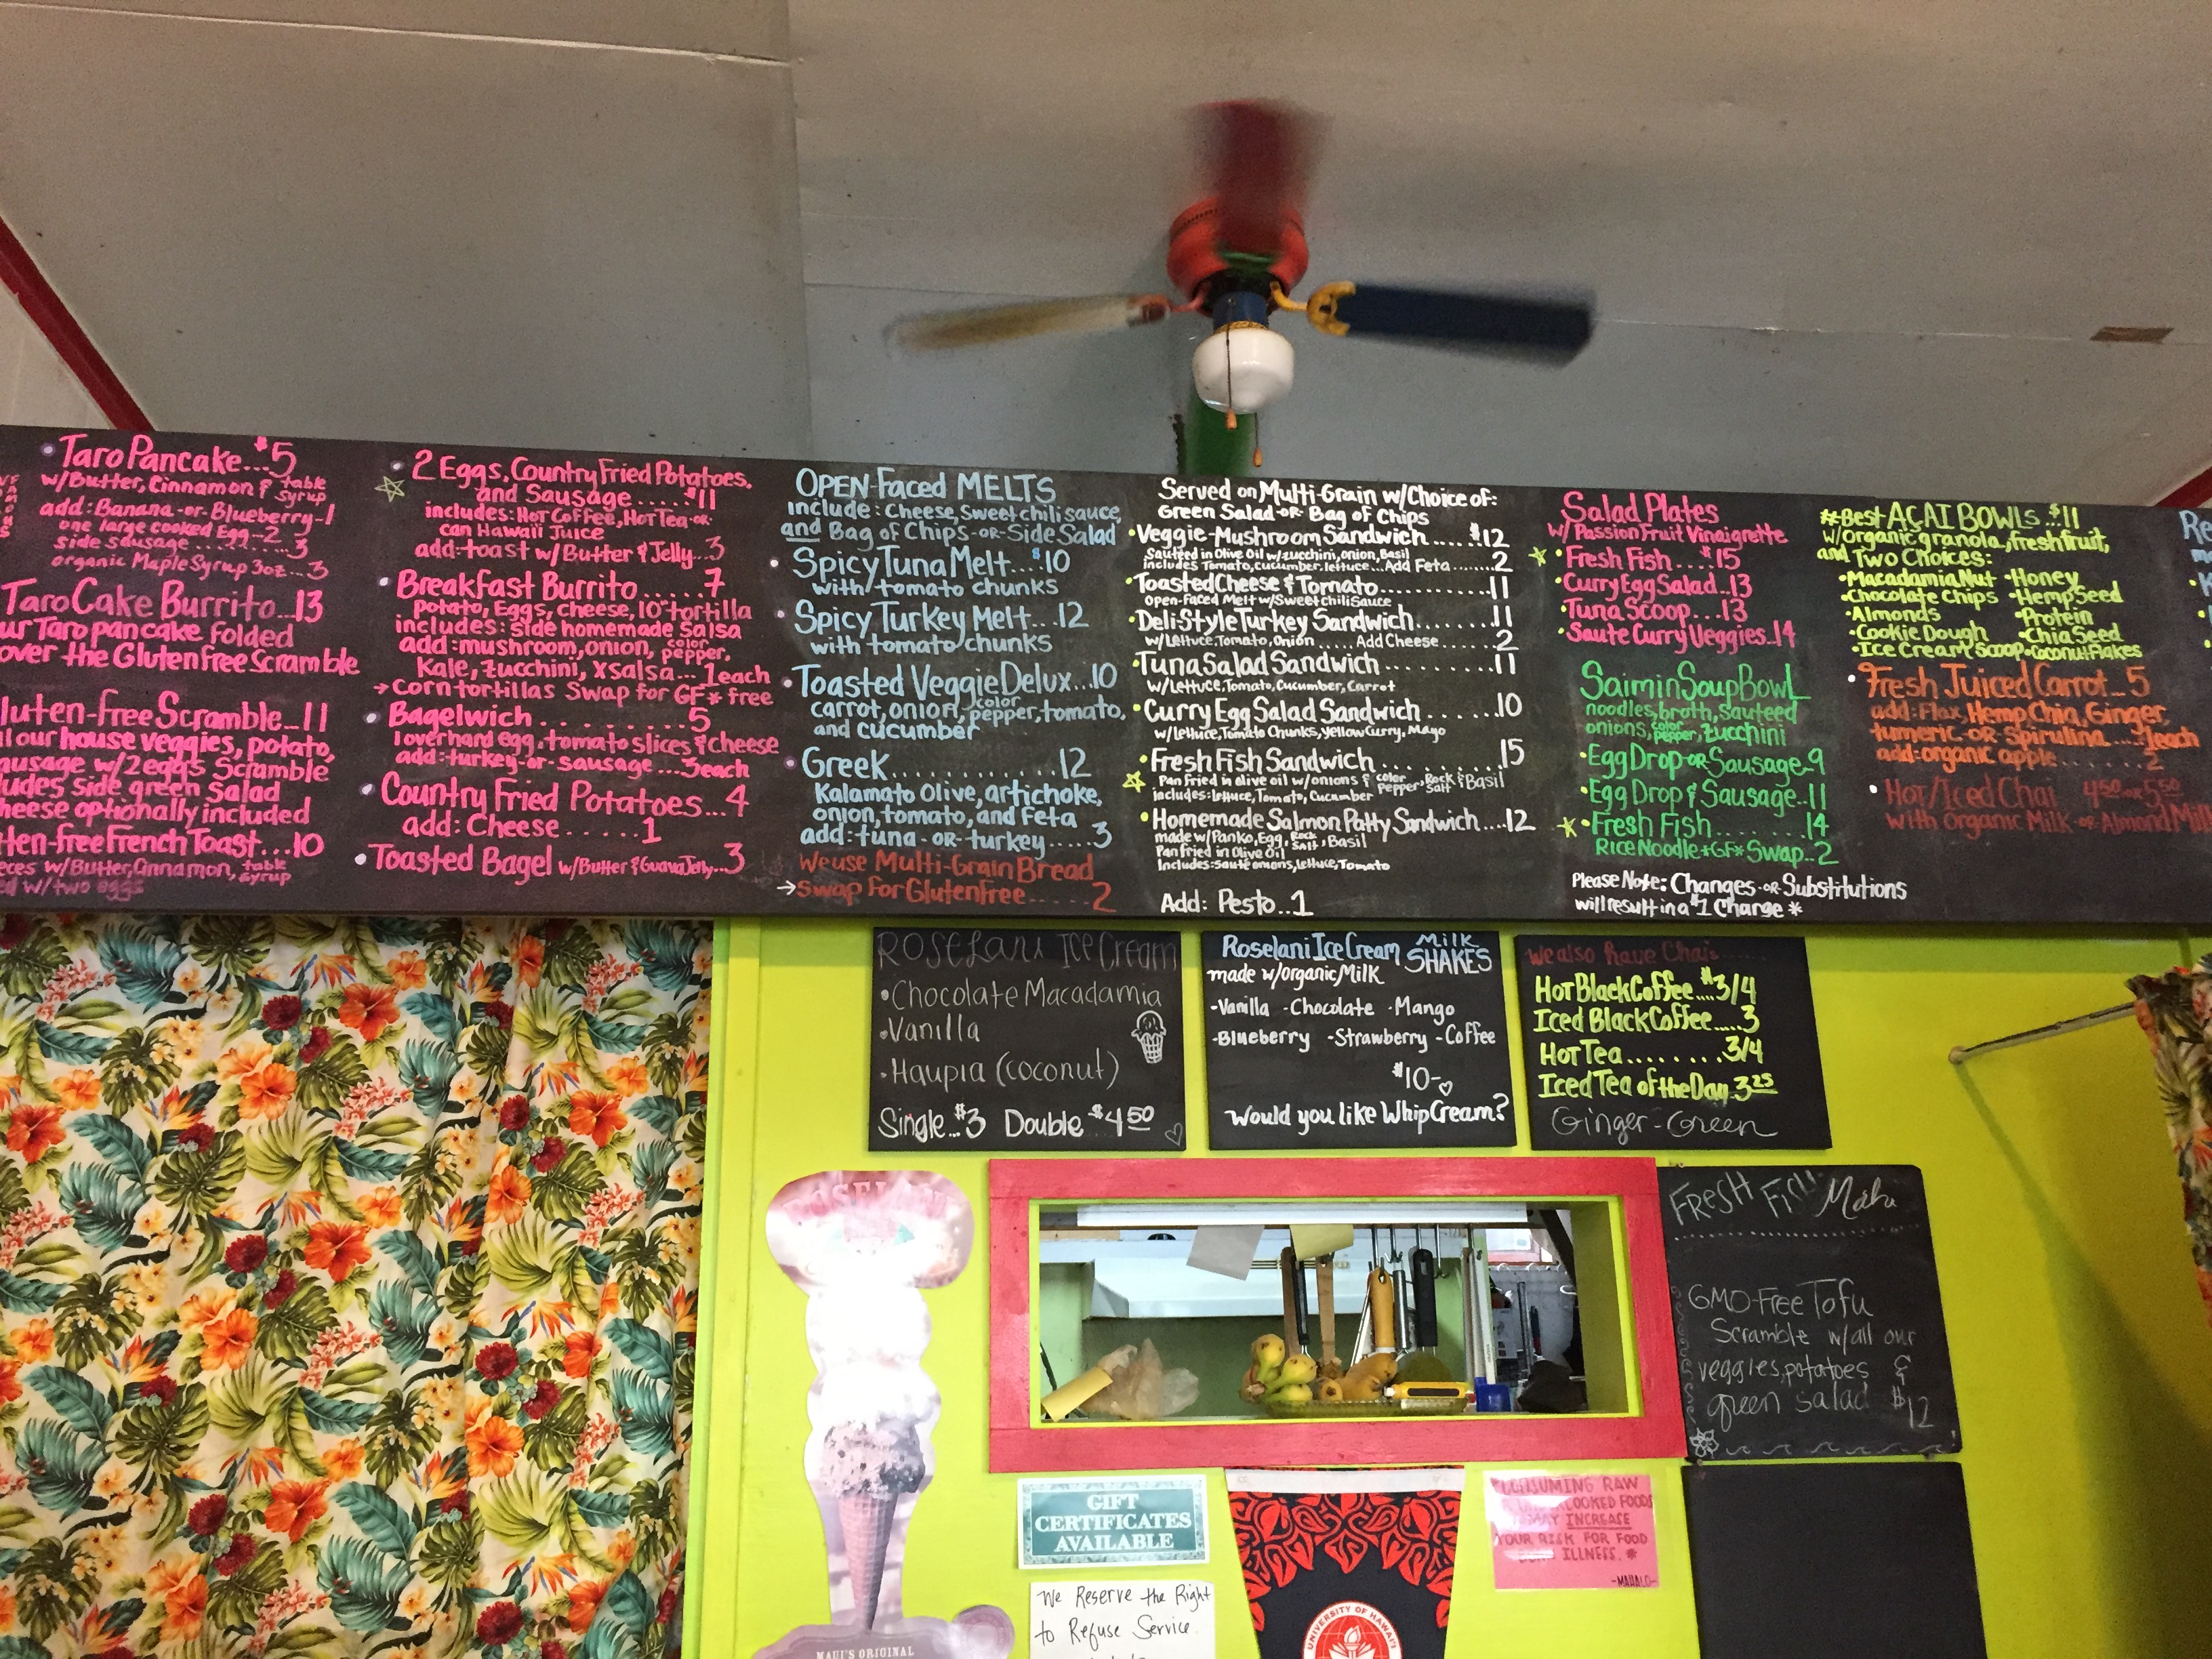 Taro Pancake...$5
w/Butter, Cinnamon & table syrup
add: Banana -or- Blueberry-1
one large cooked Egg--2
side sausage ........3
organic Maple Syrup 3oz...3
Taro Cake Burrito..13
Taro pancake folded
over the Gluten free Scramble
Scramble..11
our house veggies, potato,
w/2 eggs Scramble
side green salad
optionally included
French Toast...10
w/Butter, Cinnamon, table syrup
w/two eggs
2 Eggs, Country Fried Potatoes,
and Sausage ....$11
includes: Hot Coffee, Hot Tea -or-
can Hawaii Juice
add: toast w/Butter & Jelly..3
Breakfast Burrito .....7
potato, Eggs, cheese, 10" tortilla
includes: side homemade salsa
add: mushroom, onion, color pepper,
Kale, zucchini, xsalsa... 1each
→Corn tortillas Swap for GF* free
Bagelwich ........5
1 overhard egg, tomato slices & cheese
add: turkey -or- sausage ...3each
Country Fried Potatoes...4
add: Cheese .....1
Toasted Bagel w/Butter & Guava Jelly...3
OPEN-Faced MELTS
include: Cheese, Sweet chili sauce,
and Bag of Chips -OR- Side Salad
Spicy Tuna Melt...$10
with tomato chunks
Spicy Turkey Melt...12
with tomato chunks
Toasted Veggie Delux...10
carrot, onion, color pepper, tomato,
and cucumber
Greek............12
Kalamato Olive, artichoke,
onion, tomato, and Feta
add: tuna -OR- turkey.....3
We use Multi-Grain Bread
→Swap for Glutenfree.....2
Served on Multi-Grain w/Choice of:
Green Salad -OR- Bag of Chips
Veggie-Mushroom Sandwich.....$12
Sauteed in Olive Oil w/zucchini, onion, Basil
includes Tomato, cucumber, lettuce...Add Feta........2
Toasted Cheese & Tomato...........11
Open-Faced Melt w/Sweet Chili Sauce
Deli Style Turkey Sandwich........11
w/Lettuce, Tomato, Onion..... Add Cheese.......2
Tuna Salad Sandwich..........11
w/Lettuce, Tomato, Cucumber, Carrot
Curry Egg Salad Sandwich.......10
w/Lettuce, Tomato Chunks, Yellow Curry, Mayo
Fresh Fish Sandwich.........15
Pan fried in olive oil w/onions & color pepper, Rock Salt & Basil
includes: Lettuce, Tomato, Cucumber
Homemade Salmon Patty Sandwich....12
made w/Panko, Egg, Rock Salt, Basil
Pan fried in Olive Oil
Includes: sauté onions, lettuce, Tomato
Add: Pesto..1
Salad Plates
w/Passion Fruit Vinaigrette
Fresh Fish....$15
Curry Egg Salad..13
Tuna Scoop....13
Saute Curry Veggies..14
Saimin Soup Bowl
noodles, broth, sauteed
onions, color pepper, zucchini
Egg Drop -OR- Sausage-9
Egg Drop & Sausage..11
Fresh Fish.........14
Rice Noodle *GF* Swap..2
Please Note: Changes -OR- Substitutions
will result in a $1 Charge *
#Best AÇAI BOWLS..$11
w/organic granola, fresh fruit,
and Two Choices:
Macadamia Nut
Chocolate Chips
Almonds
Cookie Dough
Ice Cream Scoop
Honey
Hemp Seed
Protein
Chia Seed
Coconut Flakes
Fresh Juiced Carrot...5
add: Flax, Hemp, Chia, Ginger,
turmeric -OR- Spirulina....1each
add: organic apple.........2
Hot/Iced Chai 4⁵⁰ -or- 5⁵⁰
with Organic Milk -OR- Almond Milk
Roselani Ice Cream
Chocolate Macadamia
Vanilla
Haupia (coconut)
Single..$3 Double $4.50
Roselani Ice Cream Milk SHAKES
made w/organic Milk
-Vanilla -Chocolate -Mango
-Blueberry -Strawberry -Coffee
$10-
Would you like Whip Cream?
We also have Chai.....
Hot Black Coffee....$3/4
Iced Black Coffee.....3
Hot Tea........3/4
Iced Tea of the Day..3²⁵
Ginger-Green
FRESH Fish Mahi
GMO-Free Tofu
Scramble w/all our
veggies, potatoes &
green salad $12
ROSELANI
MAUI'S ORIGINAL
GIFT
CERTIFICATES
AVAILABLE
We Reserve the Right
to Refuse Service.
UNIVERSITY OF HAWAI'I
CONSUMING RAW
COOKED FOODS
MAY INCREASE
YOUR RISK FOR FOOD
ILLNESS. *
-MAHALO-